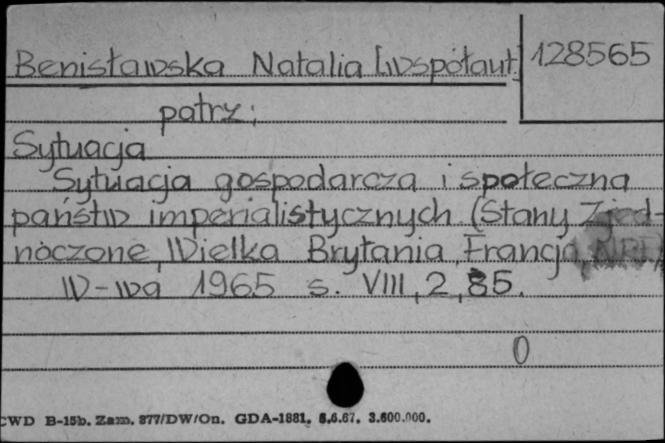 Benisławska Natalia [współaut.] 128565
patrz:
Sytuacja
Sytuacja gospodarcza i społeczna
państw imperialistycznych (Stany Zjed-
noczone, Wielka Brytania, Francja, NRF)
W-wa 1965 s. VIII, 2, 85.
0
CWD B-15b. Zam. 877/DW/On. GDA-1881. 6.6.67. 3.600.000.